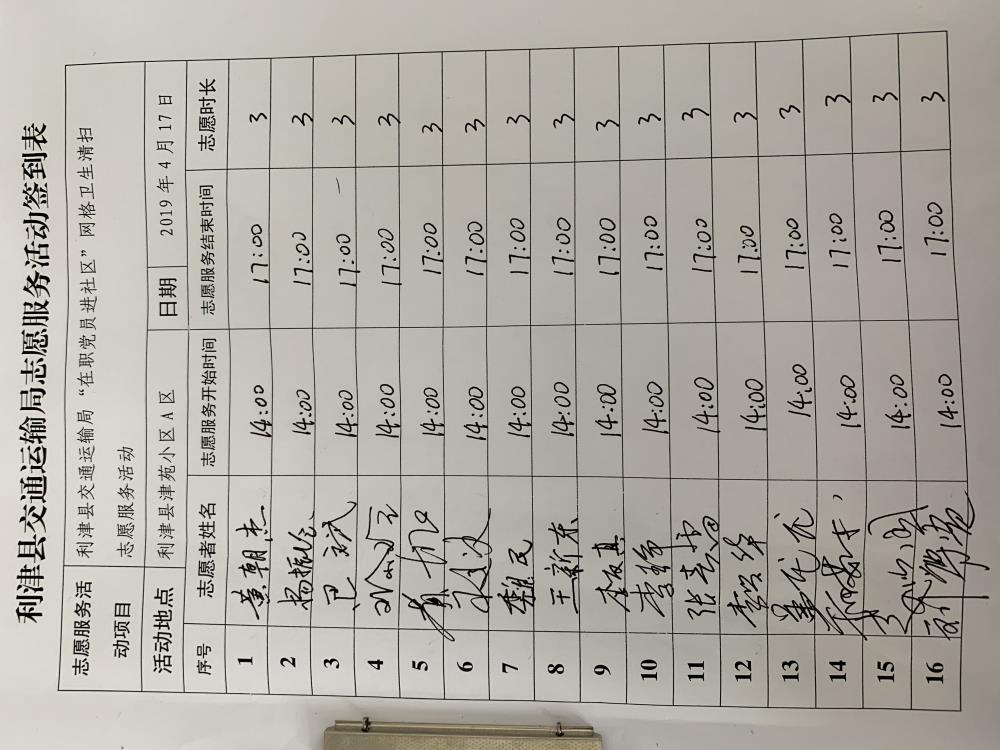 利津县交通运输局志愿服务活动签到表
志愿服务活动项目 利津县交通运输局“在职党员进社区”网格卫生清扫志愿服务活动
活动地点 利津县津苑小区A区 日期 2019年4月17日
序号 志愿者姓名 志愿服务开始时间 志愿服务结束时间 志愿时长
1 黄朝杰 14:00 17:00 3
2 杨振华 14:00 17:00 3
3 巴文武 14:00 17:00 3
4 14:00 17:00 3
5 14:00 17:00 3
6 14:00 17:00 3
7 魏民 14:00 17:00 3
8 王新东 14:00 17:00 3
9 14:00 17:00 3
10 14:00 17:00 3
11 14:00 17:00 3
12 14:00 17:00 3
13 14:00 17:00 3
14 14:00 17:00 3
15 14:00 17:00 3
16 14:00 17:00 3